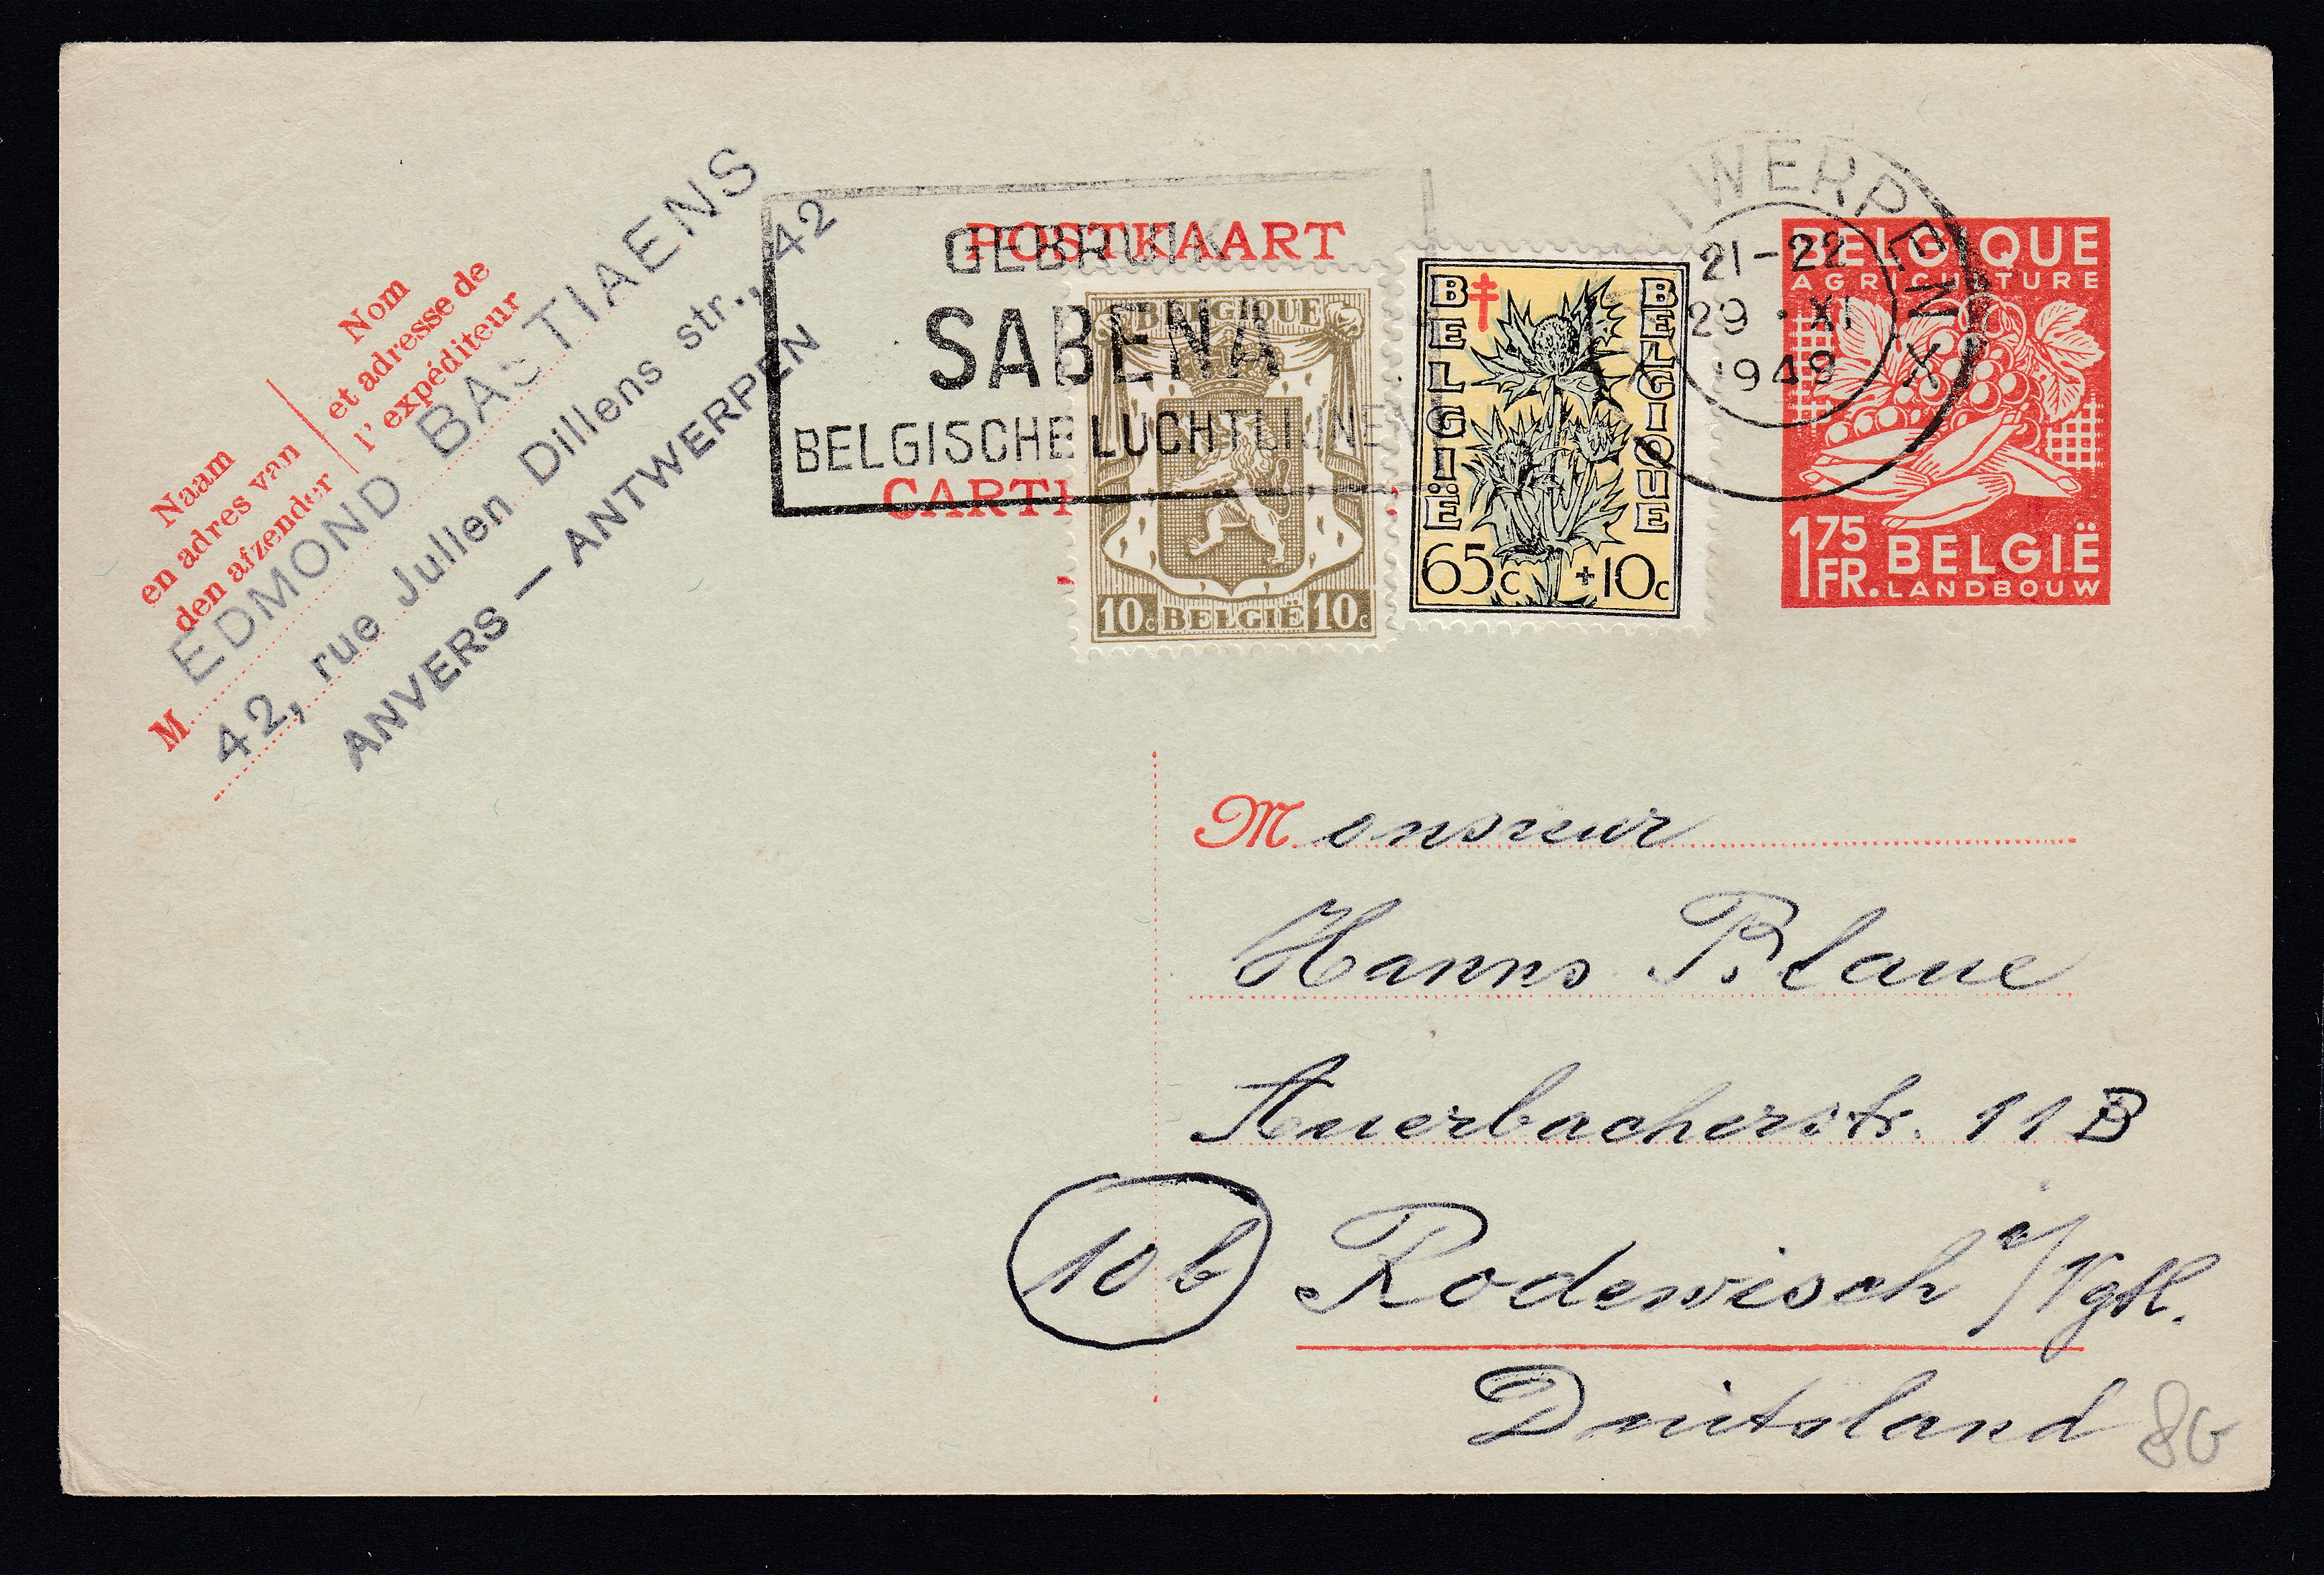 Naam
en adres van
den afzender
Nom
et adresse de
l'expéditeur
M
EDMOND BASTIAENS
42, rue Julien Dillens str., 42
ANVERS — ANTWERPEN
POSTKAART
GEBRUIK
SABENA
BELGISCHE LUCHTLIJNEN
BELGIQUE
10c BELGIË 10c
BELGIË
BELGIQUE
65c +10c
ANTWERPEN X
21-22
29 · XI
1949
BELGIQUE
AGRICULTURE
1 75 FR.
BELGIË
LANDBOUW
Monsieur
Hanns Blaue
Auerbacherstr. 11 B
10b Rodewisch i/Vgtl.
Duitsland